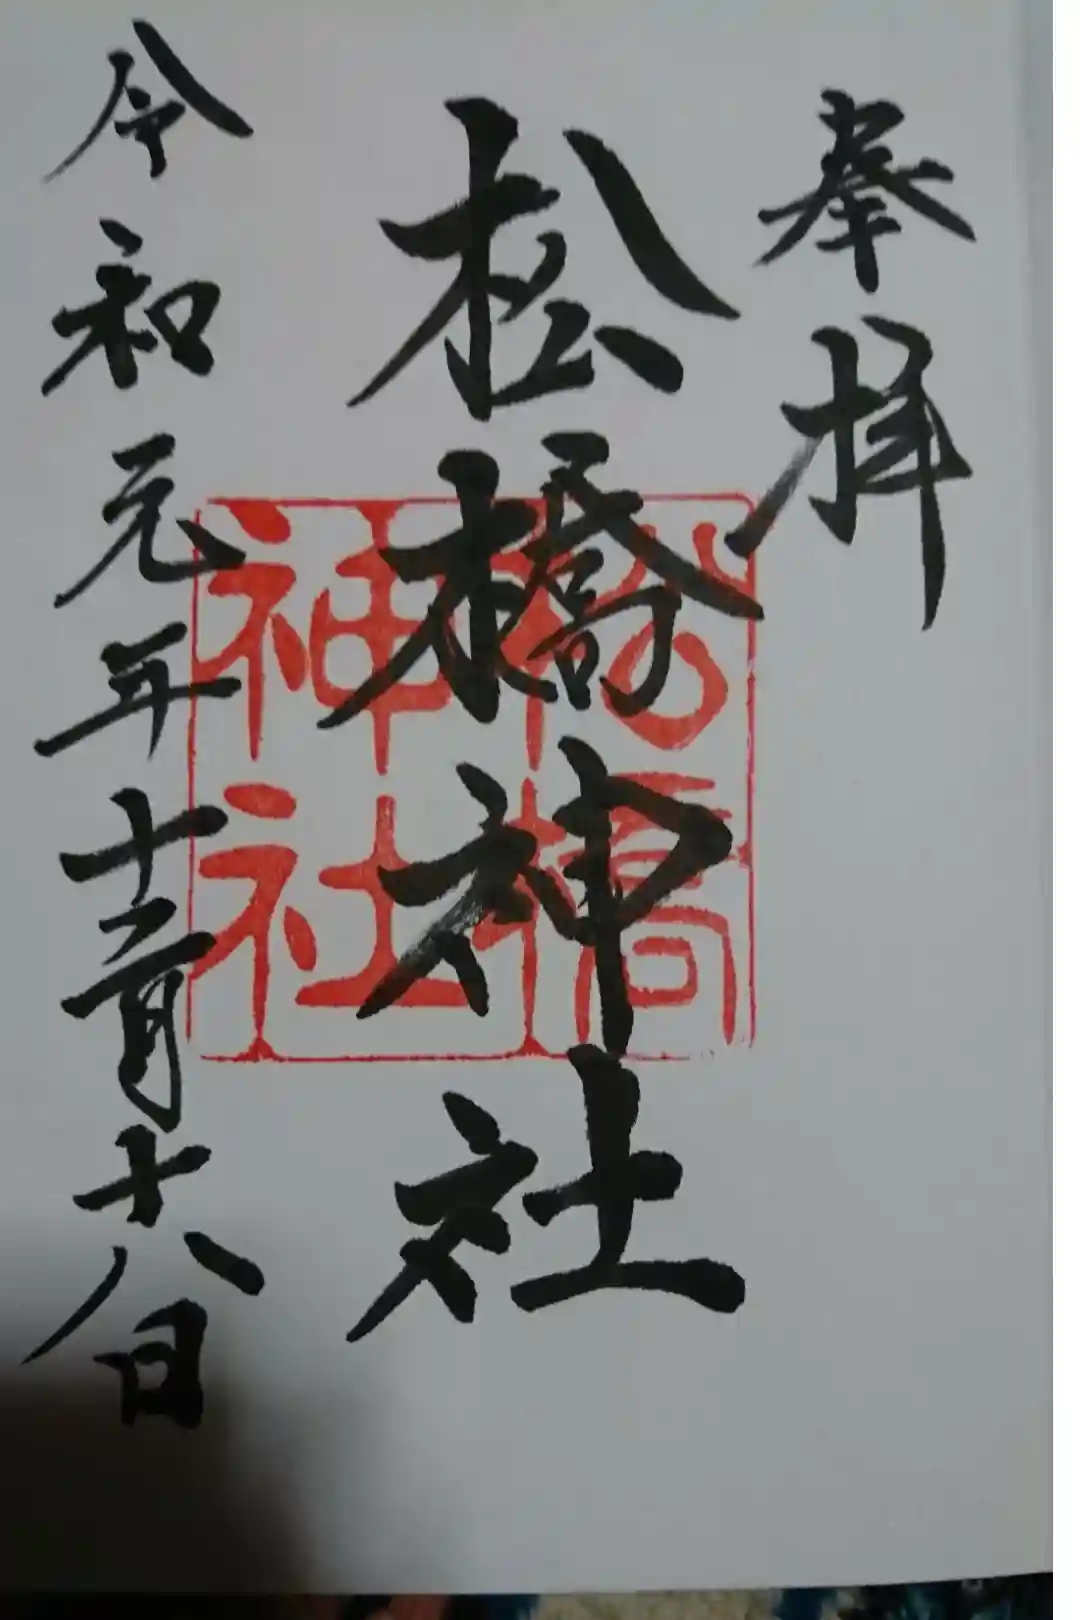 奉拝
松橋神社
松橋
神社
令和元年十二月十八日